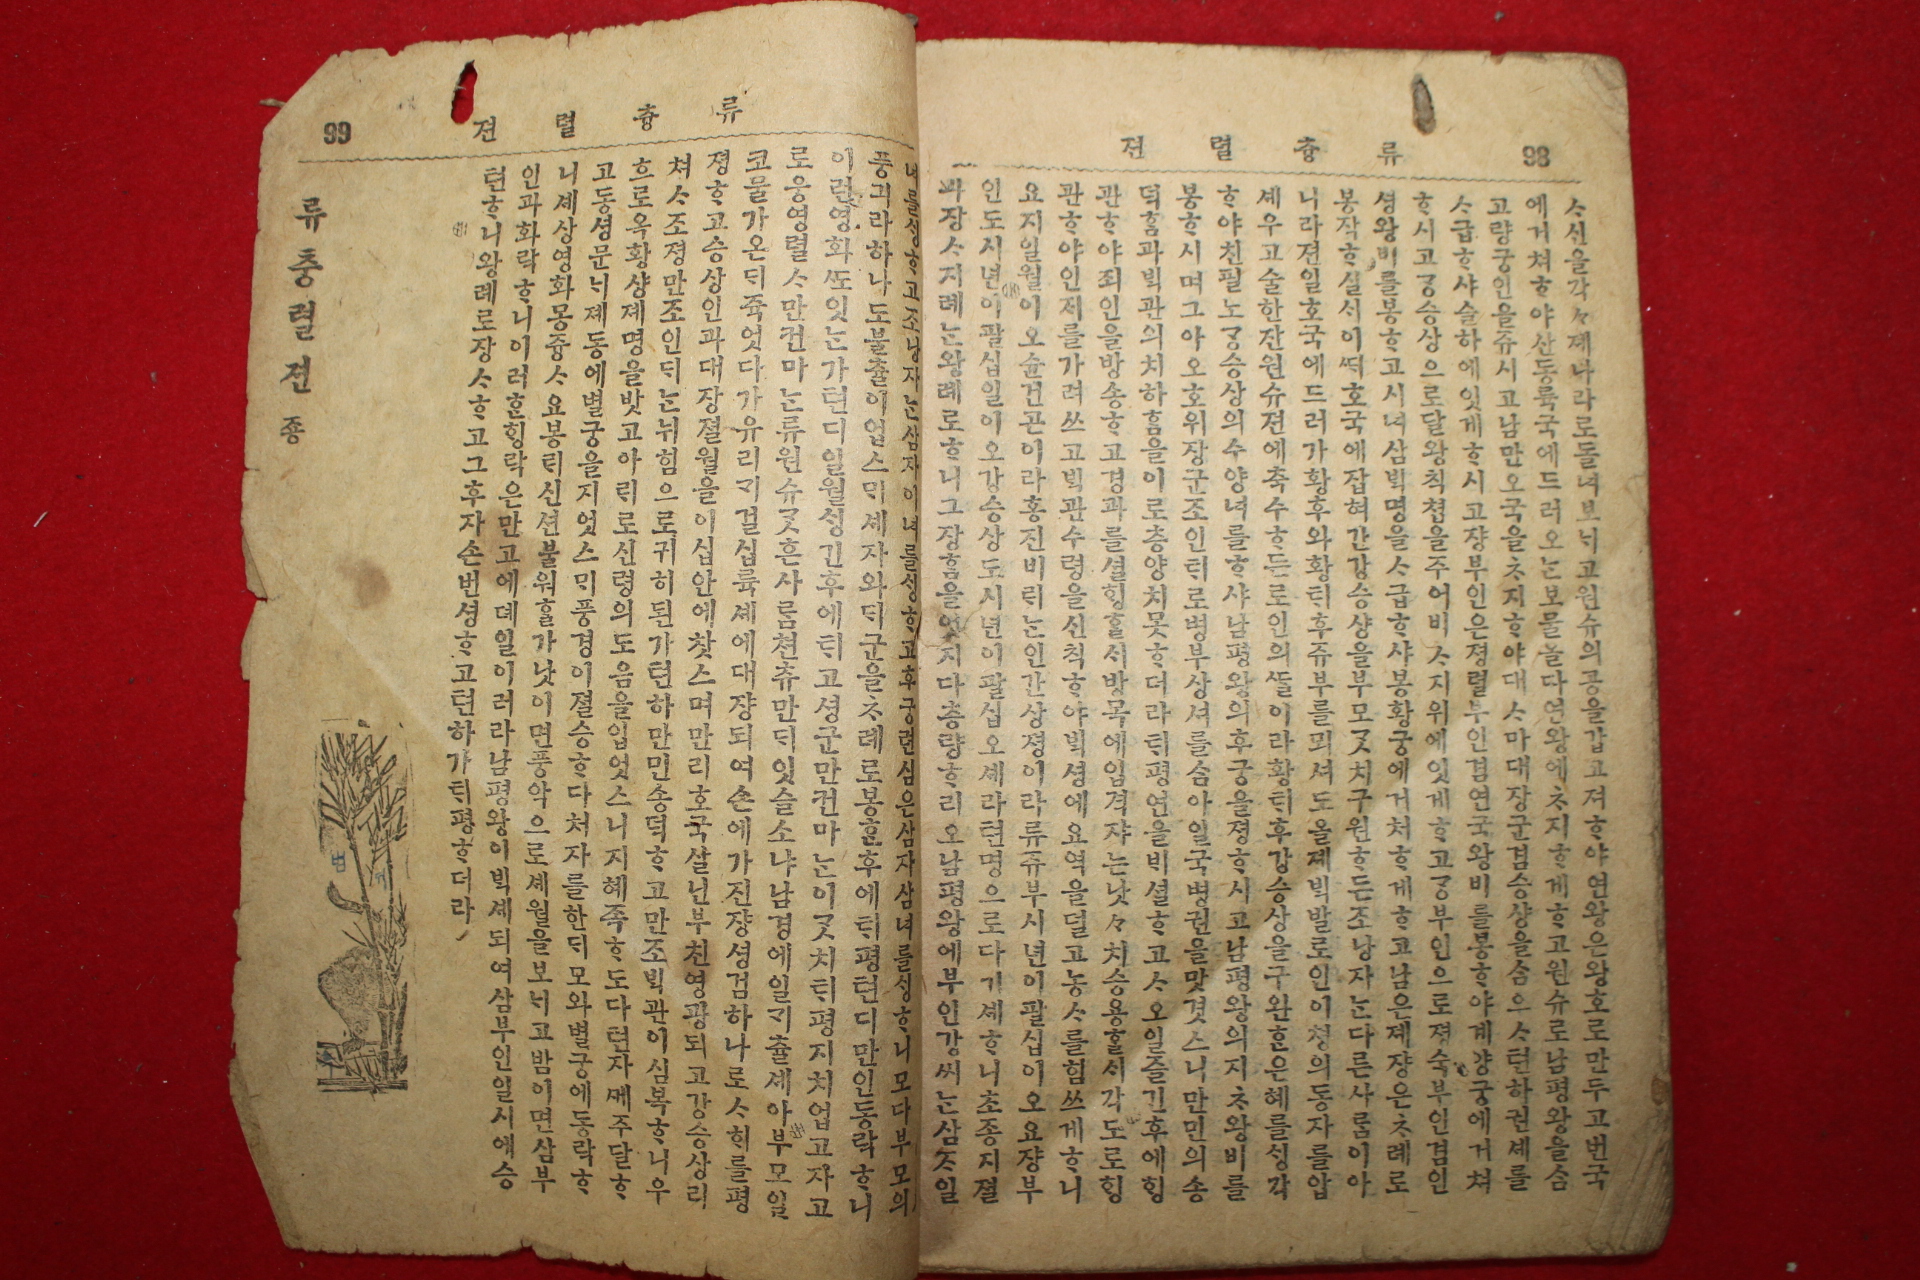 98 류츙렬젼
ᄉᆞ신을각々졔나라로돌녀보ᄂᆡ고원슈의공을갑고져ᄒᆞ야연왕은왕호로만두고번국
에거쳐ᄒᆞ야산동륙국에드러오ᄂᆞᆫ보물놀다연왕에ᄎᆞ지ᄒᆞ게ᄒᆞ고원슈로남평왕을ᄉᆞᆷ
고량궁인을쥬시고남만오국을ᄎᆞ지ᄒᆞ야대ᄉᆞ마대장군겸승샹을ᄉᆞᆷ으ᄉᆞ텬하권셰를
ᄉᆞ급ᄒᆞ샤슬하에잇게ᄒᆞ시고쟝부인은졍렬부인겸연국왕비를봉ᄒᆞ야계량궁에거쳐
ᄒᆞ시고강승상으로달왕칙쳡을주어비ᄌᆞ지위에잇게ᄒᆞ고강부인으로졍숙부인겸인
셩왕비를봉ᄒᆞ고시녀삼ᄇᆡᆨ명을ᄉᆞ급ᄒᆞ샤봉황궁에거쳐ᄒᆞ게ᄒᆞ고남은졔쟝은ᄎᆞ례로
봉작ᄒᆞ실ᄉᆡ이ᄯᅢ호국에잡혀간강승샹을부모ᄀᆞᆺ치구원ᄒᆞ든조낭자ᄂᆞᆫ다른사ᄅᆞᆷ이아
니라젼일호국에드러가황후와황ᄐᆡ후쥬부를뫼셔도올졔ᄇᆡᆨ발로인이쳥의동자를압
셰우고술한잔원슈젼에축수ᄒᆞ든로인의ᄯᅡᆯ이라황ᄐᆡ후강승상을구완ᄒᆞᆫ은혜를ᄉᆡᆼ각
ᄒᆞ야친필노강승상의수양녀를ᄒᆞ샤남평왕의후궁을졍ᄒᆞ시고남평왕의지ᄎᆞ왕비를
봉ᄒᆞ시며그아오호위장군조인ᄐᆡ로병부상셔를ᄉᆞᆷ아일국병권을맛겻스니만민의송
덕ᄒᆞᆷ과ᄇᆡᆨ관의치하ᄒᆞᆷ을이로층양치못ᄒᆞ더라ᄐᆡ평연을ᄇᆡ셜ᄒᆞ고ᄉᆞ오일즐긴후에ᄒᆡᆼ
관ᄒᆞ야죄인을방송ᄒᆞ고경과를셜ᄒᆡᆼᄒᆞᆯᄉᆡ방목에입격쟈ᄂᆞᆫ낫々치승용ᄒᆞᆯᄉᆡ각도로ᄒᆡᆼ
관ᄒᆞ야인ᄌᆡ를가려쓰고ᄇᆡᆨ관수령을신칙ᄒᆞ야ᄇᆡᆨ셩에요역을덜고농ᄉᆞ를힘쓰게ᄒᆞ니
요지일월이오슌건곤이라홍진비ᄅᆡᄂᆞᆫ인간상졍이라류쥬부시년이팔십이오요쟝부
인도시년이팔십일이오강승상도시년이팔십오셰라텬명으로다기셰ᄒᆞ니초종지졀
과장ᄉᆞ지례ᄂᆞᆫ왕례로ᄒᆞ니그장ᄒᆞᆷ을엇지다층량ᄒᆞ리오남평왕에부인강씨ᄂᆞᆫ삼ᄌᆞ일
류츙렬젼 99
녀를ᄉᆡᆼᄒᆞ고조낭자ᄂᆞᆫ삼자이녀를ᄉᆡᆼᄒᆞ고후궁련심은삼자삼녀를ᄉᆡᆼᄒᆞ니모다부모의
풍ᄀᆡ라하나도불츌이업스ᄆᆡ셰자와ᄃᆡ군을ᄎᆞ례로봉ᄒᆞᆫ후에ᄐᆡ평텬디만인동락ᄒᆞ니
이런영화ᄯᅩ잇ᄂᆞᆫ가텬디일월ᄉᆡᆼ긴후에ᄐᆡ고셩군만건마ᄂᆞᆫ이ᄀᆞᆺ치ᄐᆡ평지치업고자고
로웅영렬ᄉᆞ만건마ᄂᆞᆫ류원슈ᄀᆞᆺ흔사ᄅᆞᆷ쳔츄만ᄃᆡ잇슬소냐남경에일ᄀᆡ츌셰아부모일
코물가온ᄃᆡ쥭엇다가유리ᄀᆡ걸십륙셰에대쟝되여손에가진쟝셩검하나로ᄉᆞᄒᆡ를평
졍ᄒᆞ고승상인과대장졀월을이십안에찻스며만리호국살닌부친영광되고강승상리
쳐ᄉᆞ조졍만조인ᄃᆡᄂᆞᆫ뉘힘으로귀히된가텬하만민송덕ᄒᆞ고만조ᄇᆡᆨ관이심복ᄒᆞ니우
흐로옥황샹졔명을밧고아ᄅᆡ로신령의도음을입엇스니지혜족ᄒᆞ도다텬자ᄭᅦ주달ᄒᆞ
고동셩문ᄂᆡ졔동에별궁을지엇스ᄆᆡ풍경이졀승ᄒᆞ다쳐자를한ᄃᆡ모와별궁에동락ᄒᆞ
니셰상영화몽즁ᄉᆞ요봉ᄅᆡ신션불워ᄒᆞᆯ가낫이면풍악으로셰월을보ᄂᆡ고밤이면삼부
인과화락ᄒᆞ니이러ᄒᆞᆫᄒᆡᆼ락은만고에뎨일이러라남평왕이ᄇᆡᆨ셰되여삼부인일시에승
텬ᄒᆞ니왕례로장ᄉᆞᄒᆞ고그후자손번셩ᄒᆞ고텬하가ᄐᆡ평ᄒᆞ더라
류충렬젼 종